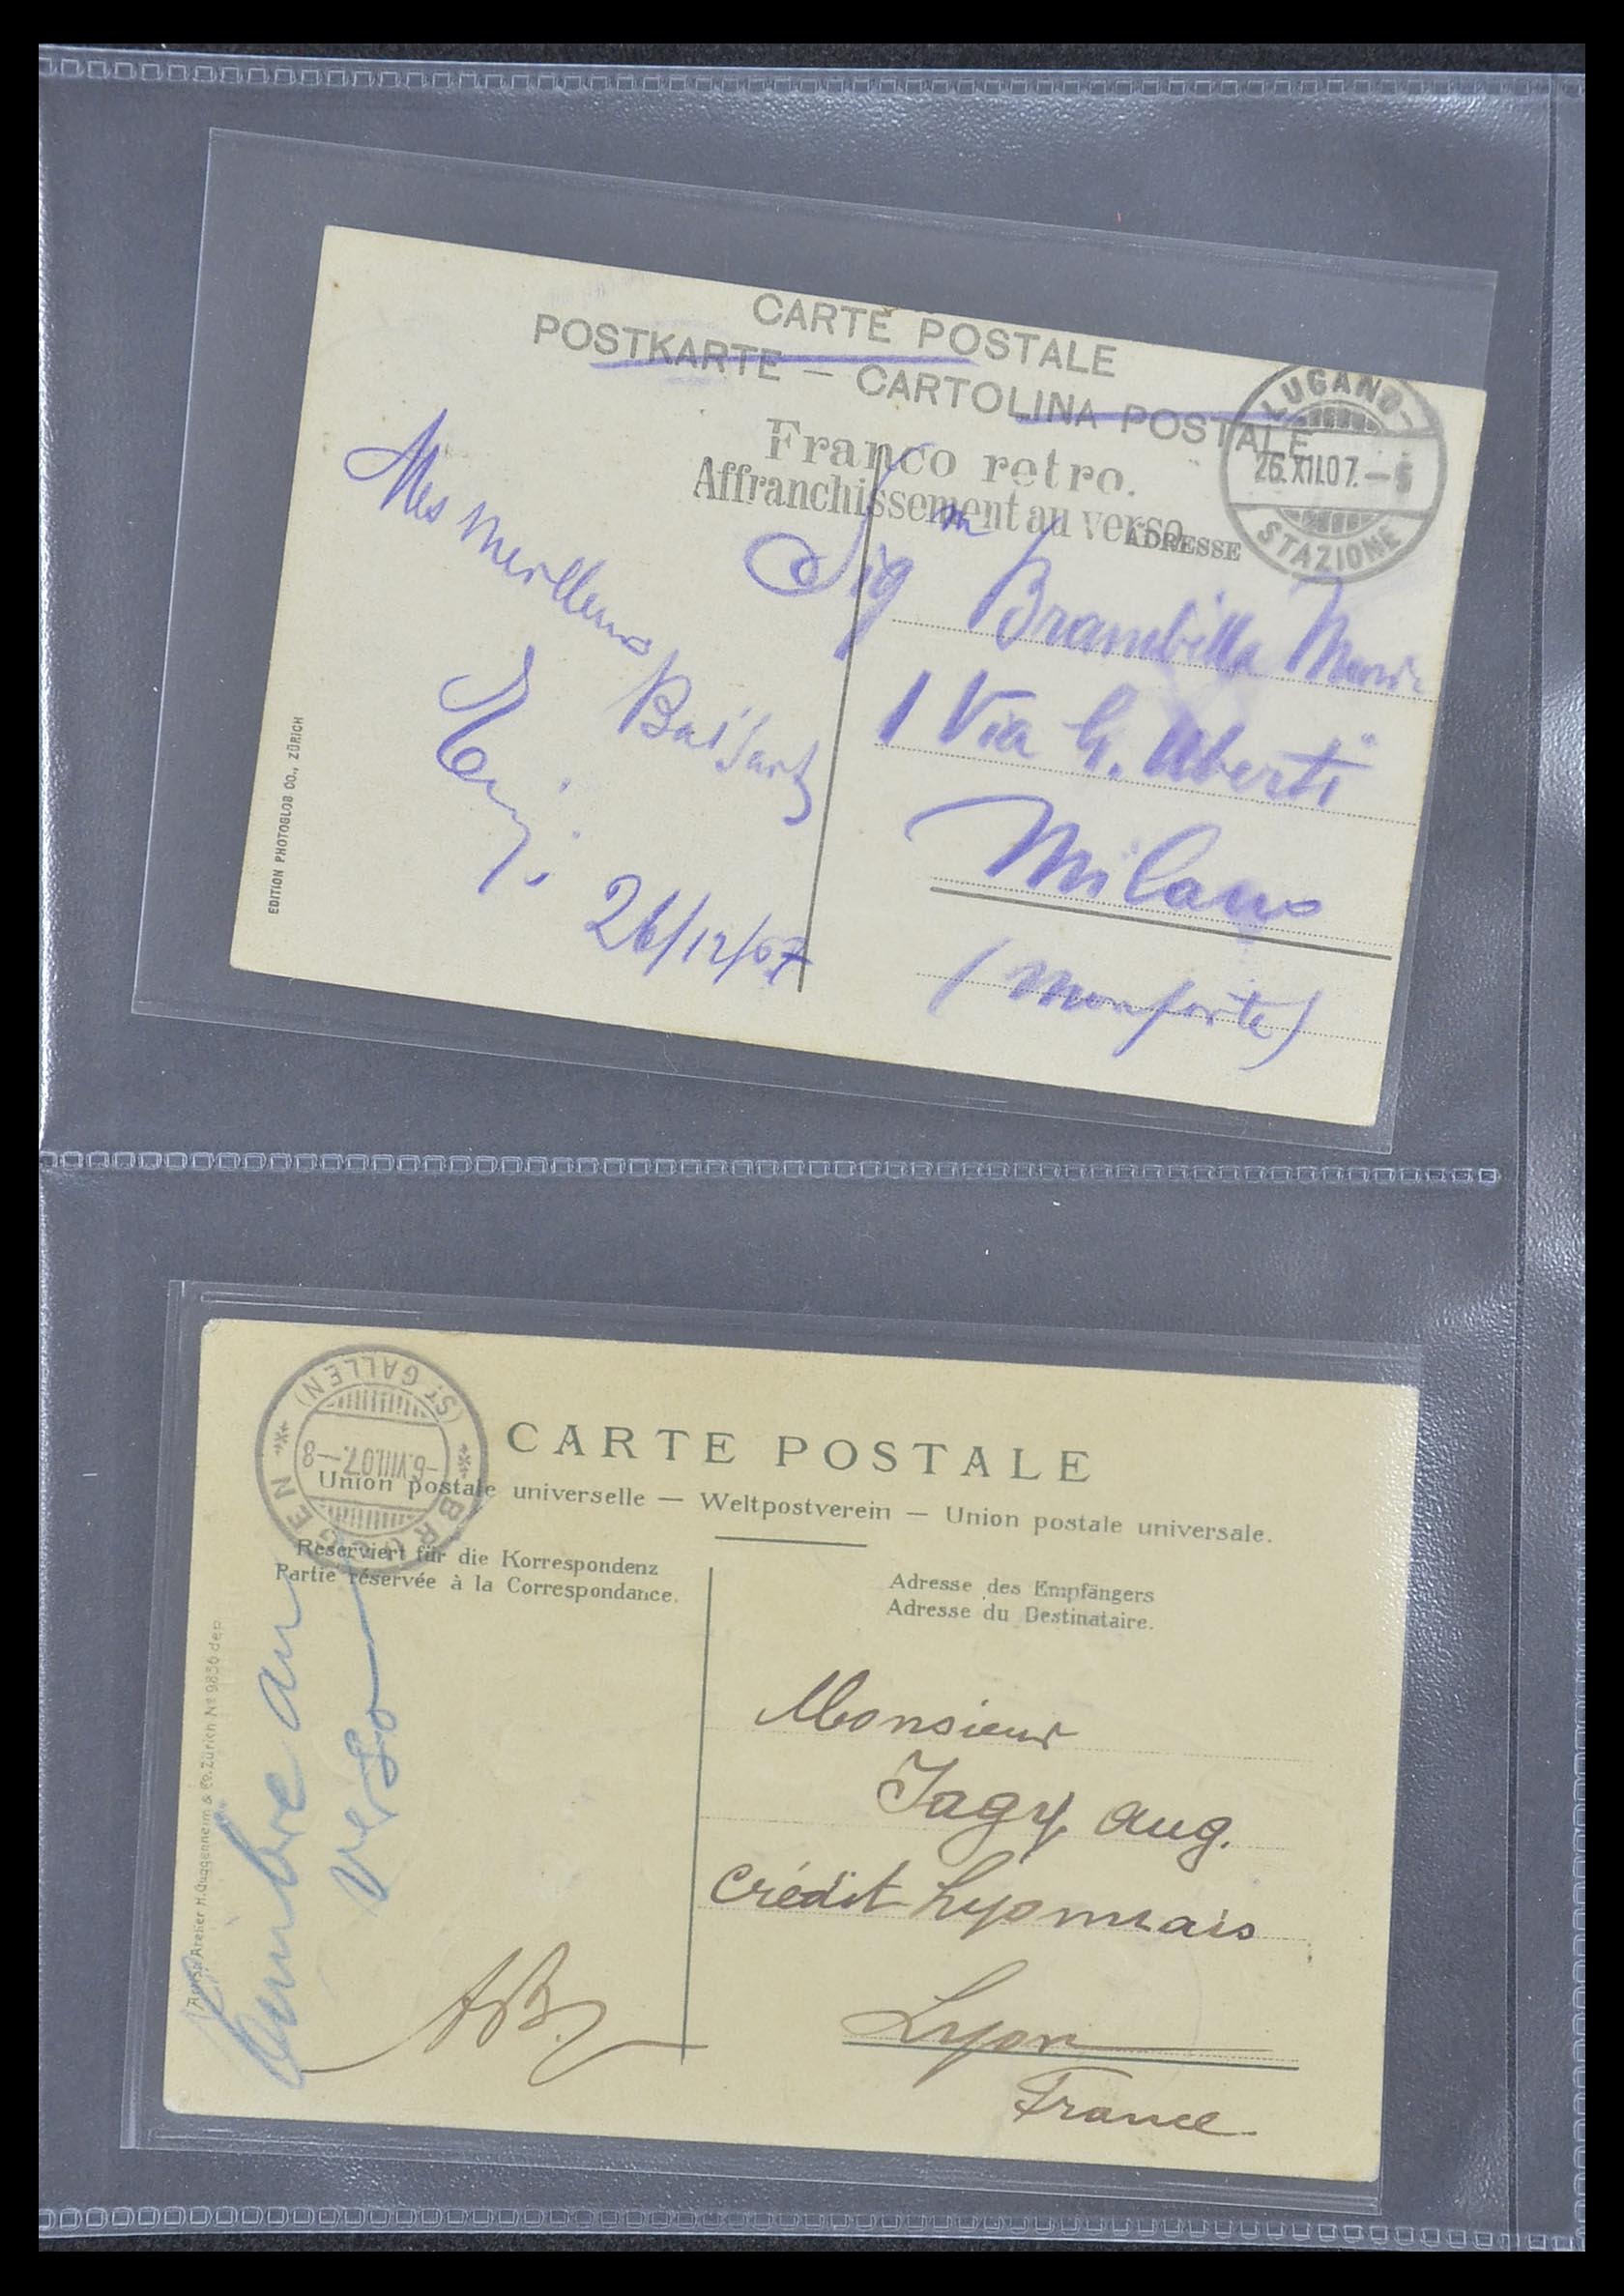 CARTE POSTALE
POSTKARTE — CARTOLINA POSTALE
Franco retro.
Affranchissement au verso
ADRESSE
LUGANO-
26.XII.07.—5
STAZIONE
Mes meilleurs
26/12/07
Sig
Brambilla
1 Via G. Uberti
Milano
(Monforte)
EDITION PHOTOGLOB CO., ZÜRICH
CARTE POSTALE
Union postale universelle — Weltpostverein — Union postale universale.
Reserviert für die Korrespondenz
Partie réservée à la Correspondance.
Adresse des Empfängers
Adresse du Destinataire.
BRGGEN
-6.VIII.07.—8
(ST GALLEN)
timbre au
verso
Monsieur
Jagy Aug.
Crédit Lyonnais
Lyon
France.
AB.
Atelier H. Guggenheim & Co. Zürich No 9836 dep